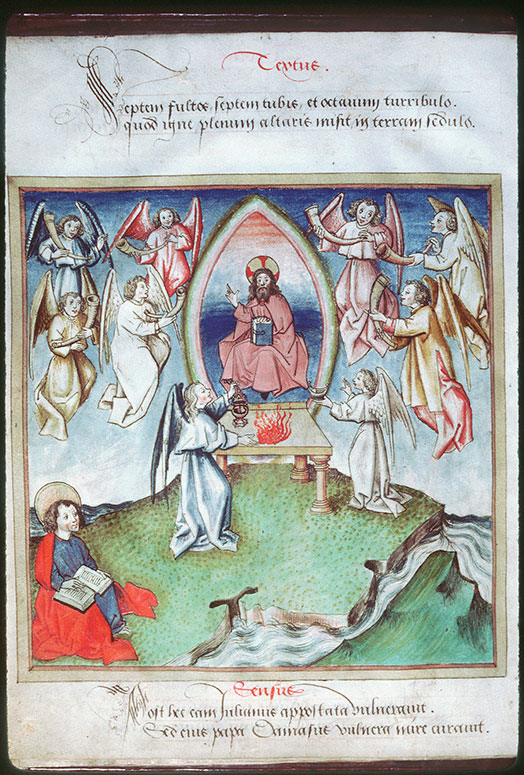 Textus.
Septem fultos, septem tubis, et octauum turribulo.
quod igne plenum altaris misit in terram sedulo.
Sensus
Post hec eam Iulianus appostata vulnerauit.
Sed eius papa Damasus vulnera mire curauit.